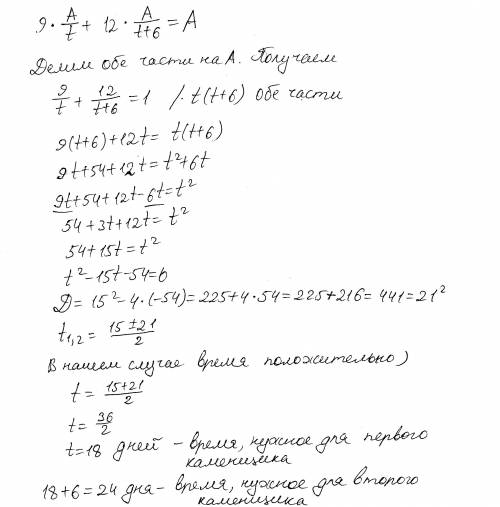 9 · A/t + 12 · A/t+6 = A
Делим обе части на А. Получаем
9/t + 12/t+6 = 1 /· t(t+6) обе части
9(t+6)+12t= t(t+6)
9t+54+12t=t²+6t
9t+54+12t-6t=t²
54+3t+12t=t²
54+15t=t²
t²-15t-54=0
D=15²-4·(-54)=225+4·54=225+216=441=21²
t1,2= 15±21/2
В нашем случае время положительно)
t= 15+21/2
t= 36/2
t=18 дней - время, нужное для первого
каменщика
18+6=24 дня- время, нужное для второго
каменщика